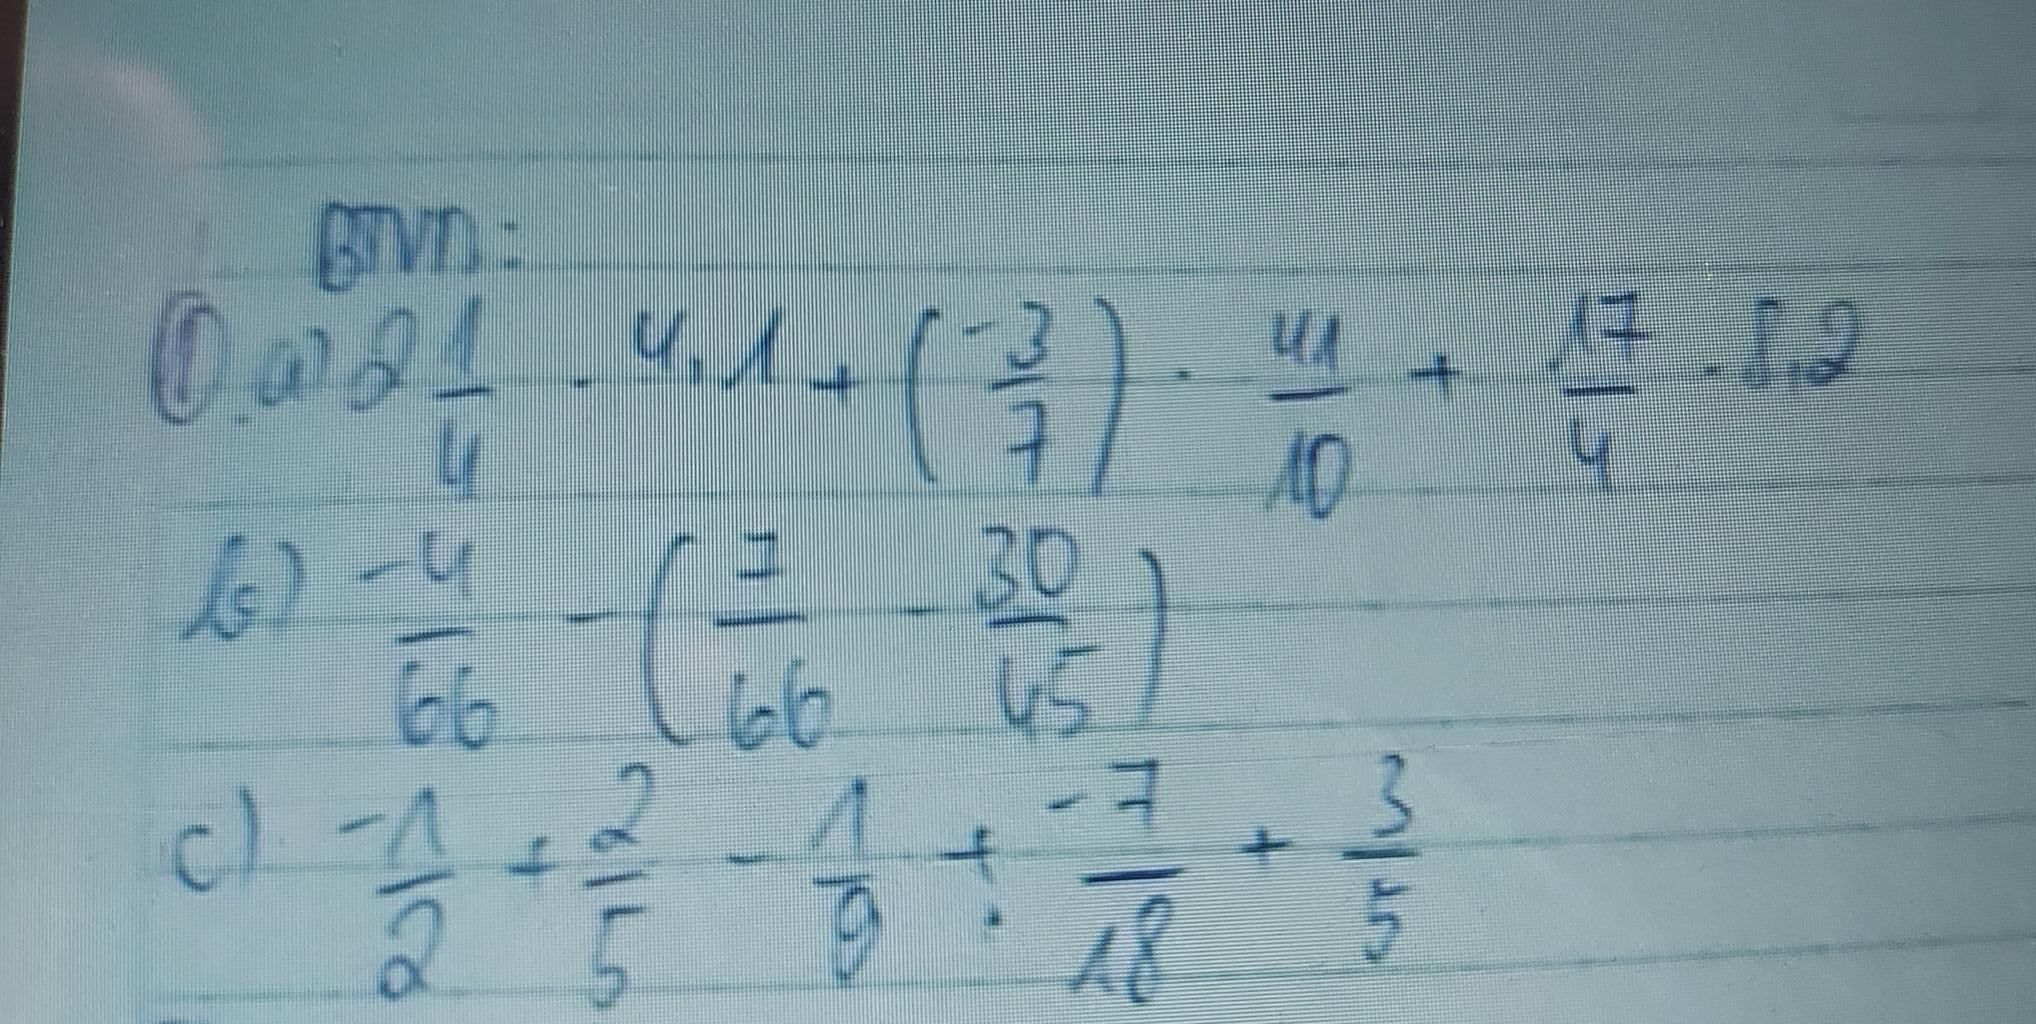 BTVN:
① a) 2 1/4 . 4,1 + (-3/7) . 41/10 + 17/4 . 5,2
b) -4/66 - (7/66 - 30/45)
c) -1/2 + 2/5 - 1/9 + : -7/18 + 3/5